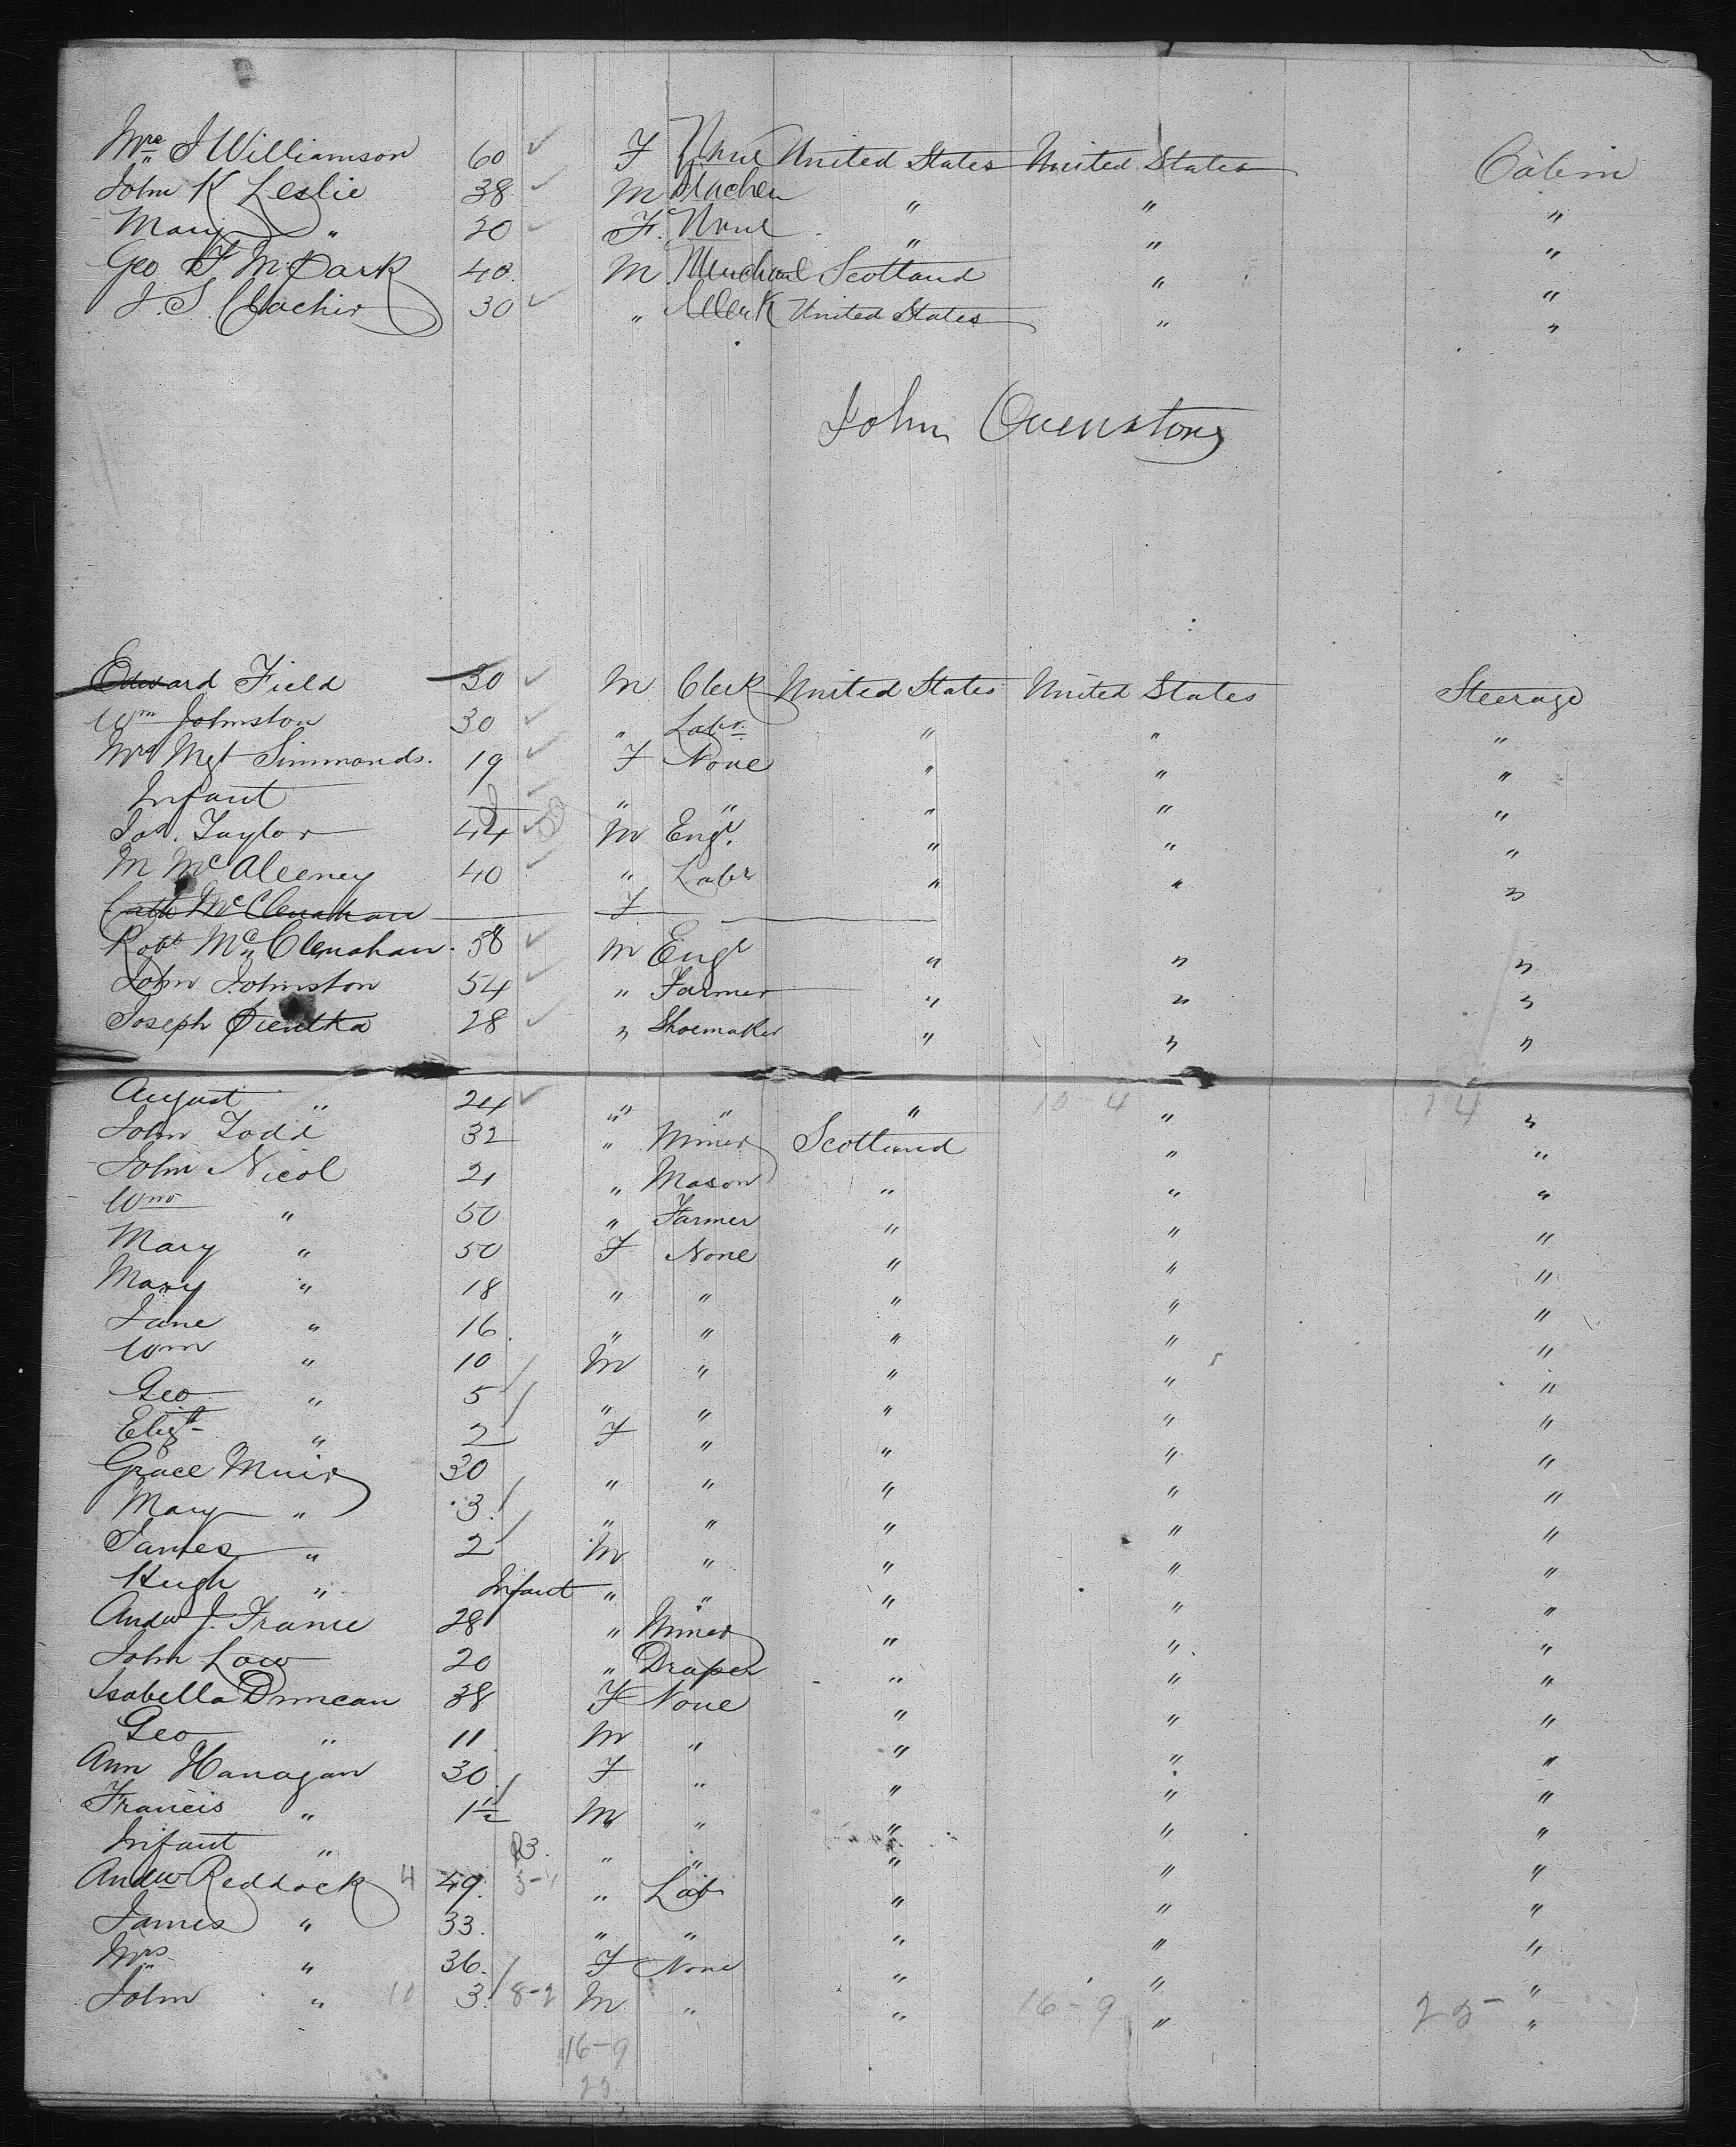 Mrs J Williamson 60 F None United States United States Cabin
John K Leslie 38 M Teacher " " "
Mary " 20 F. None " " "
Geo F McPark 40. M. Merchant Scotland " "
J. S. 30 " Clerk United States " "
John
Edward Field 30 M Clerk United States United States Steerage
Wm Johnston 30 " Labr. " " "
Mrs Mgt Simmonds. 19 F None " " "
Infant " " " " "
Jas. Taylor 44 M Engr. " " "
M McAleeney 40 " Labr " " "
Cath McClenahan F
Robt McClenahan. 58 M Engr " " "
John Johnston 54 " Farmer " " "
Joseph 28 " Shoemaker " " "
August " 24 " " " 10-4 " 14 "
John Todd 32 " Miner Scotland " "
John Nicol 21 " Mason " " "
Wm " 50 " Farmer " " "
Mary " 50 F None " " "
Mary " 18 " " " " "
Jane " 16. " " " " "
Wm " 10 / M " " " "
Geo " 5 / " " " " "
Elizt " 2 F " " " "
Grace Muir 30 " " " " "
Mary " 3. / " " " " "
James " 2 / M " " " "
Hugh " Infant " " " " "
Andw J. Frame 28 " Miner " " "
John Low 20 " Draper " " "
Isabella Duncan 38 F None " " "
Geo " 11. M " " " "
Ann Hanagan 30. F " " " "
Francis " 1½ / M " " " "
Infant " 23. " " " " "
Andw Reddock 4 49. 5-4 " Lab " " "
James " 33. " " " " "
Mrs " 36. F None " " "
John " 10 3. / 8-2 M " " 16-9 " 25- "
16-9
25